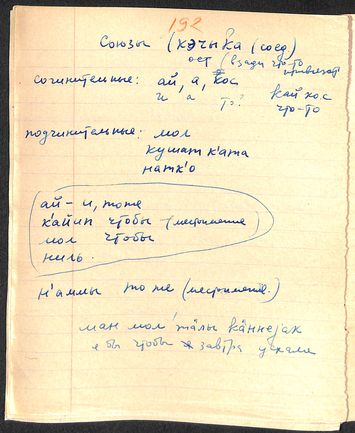 192
Союзы (кэчыка (соед)
ост (взади что-то привязат
сочинительные: ай, а, кос
и а то? кай кос
что-то
подчинительные: мол
кушат к'ата
натк'о
ай - и, тоже
к'айип чтобы (местоимение)
мол чтобы
ниль.
н'аммы то же (местоимение.)
ман мол' тäлы кäннеjак
я бы чтобы завтра уехали